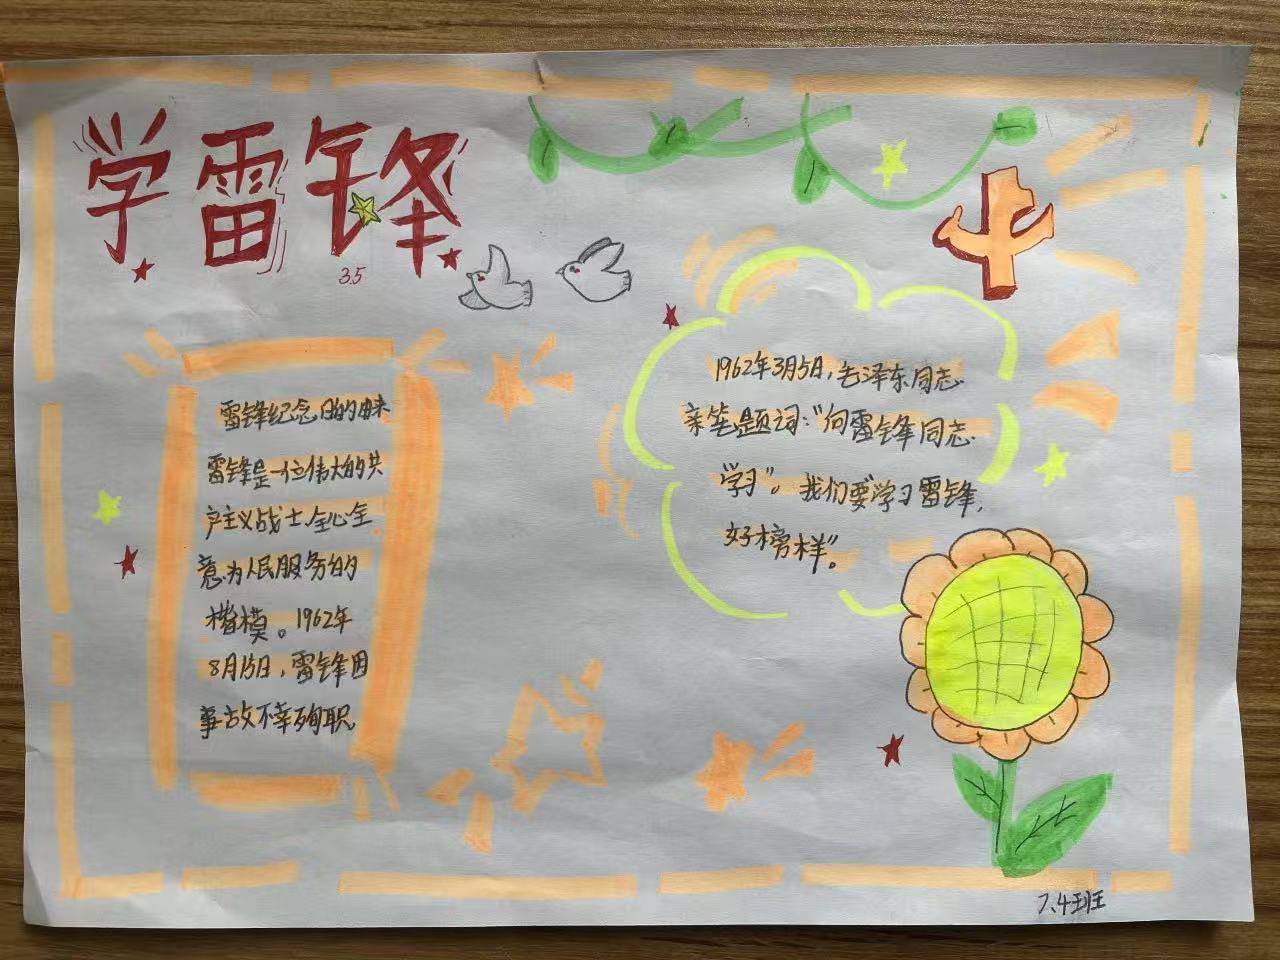 学雷锋
3.5
雷锋纪念日的由来
雷锋是一位伟大的共
产主义战士,全心全
意为人民服务的
楷模。1962年
8月15日,雷锋因
事故不幸殉职
1962年3月5日,毛泽东同志
亲笔题词:“向雷锋同志
学习”。我们要“学习雷锋,
好榜样”。
7.4班